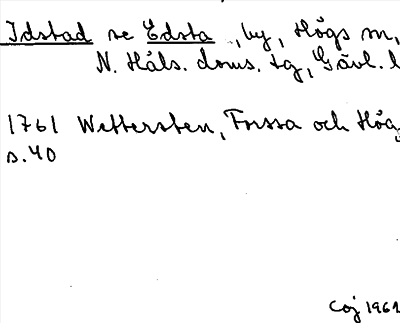 Idstad se Edsta, by, Högs sn,
N. Häls. doms. tg, Gävl. l
1761 Wettersten, Forssa och Hög,
s. 40
Coj 1961